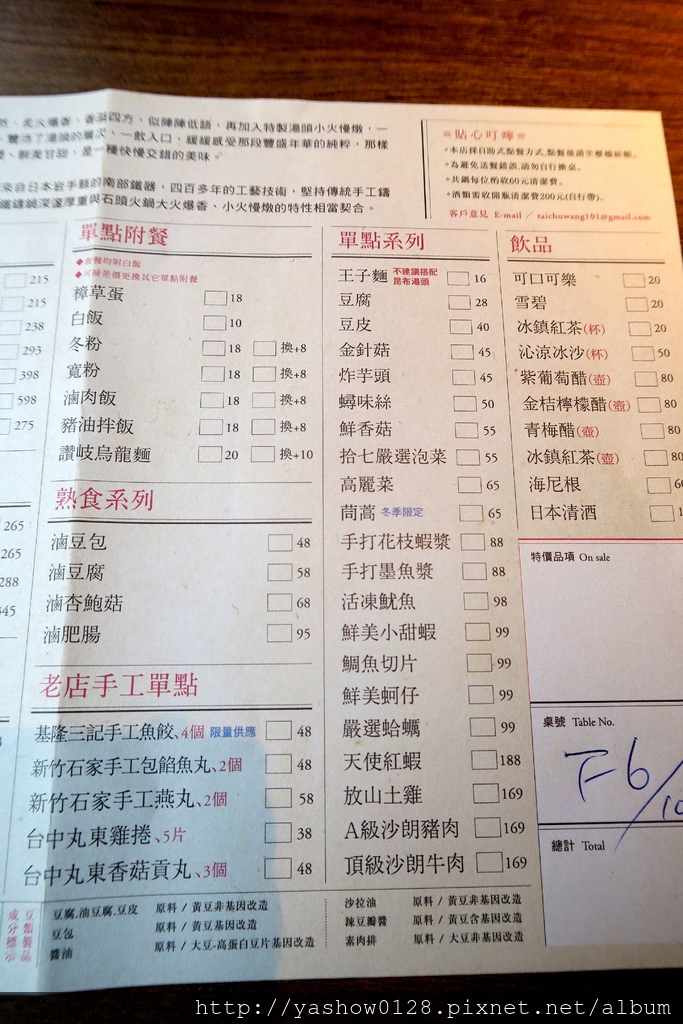 炙火爆香、香氣四方，似陣陣低語，再加入特製湯頭小火慢燉，一
一飲入口，緩緩感受那段豐盛年華的純粹，那樣
鮮美甘甜，是一種快慢交錯的美味。
來自日本岩手縣的南部鐵器，四百多年的工藝技術，堅持傳統手工鑄
鐵鑄鍋深邃厚重與石頭火鍋大火爆香、小火慢燉的特性相當契合。
貼心叮嚀
•本店採自助式點餐方式,點餐後請至櫃檯結帳。
•為避免送餐錯誤,請勿自行換桌。
•共鍋每位酌收60元清潔費。
•酒類需收開瓶清潔費200元(自行帶)。
客戶意見 E-mail／taichuwang101@gmail.com
215
215
238
293
398
598
275
265
265
288
345
單點附餐
◆套餐均附白飯
◆可補差價更換其它單點附餐
樟草蛋 18
白飯 10
冬粉 18 換+8
寬粉 18 換+8
滷肉飯 18 換+8
豬油拌飯 18 換+8
讚岐烏龍麵 20 換+10
熟食系列
滷豆包 48
滷豆腐 58
滷杏鮑菇 68
滷肥腸 95
老店手工單點
基隆三記手工魚餃、4個 限量供應 48
新竹石家手工包餡魚丸、2個 48
新竹石家手工燕丸、2個 58
台中丸東雞捲、5片 38
台中丸東香菇貢丸、3個 48
單點系列
王子麵 不建議搭配昆布湯頭 16
豆腐 28
豆皮 40
金針菇 45
炸芋頭 45
蟳味絲 50
鮮香菇 55
拾七嚴選泡菜 55
高麗菜 65
茼蒿 冬季限定 65
手打花枝蝦漿 88
手打墨魚漿 88
活凍魷魚 98
鮮美小甜蝦 99
鯛魚切片 99
鮮美蚵仔 99
嚴選蛤蠣 99
天使紅蝦 188
放山土雞 169
A級沙朗豬肉 169
頂級沙朗牛肉 169
飲品
可口可樂 20
雪碧 20
冰鎮紅茶(杯) 20
沁涼冰沙(杯) 50
紫葡萄醋(壺) 80
金桔檸檬醋(壺) 80
青梅醋(壺) 80
冰鎮紅茶(壺) 80
海尼根
日本清酒
特價品項 On sale
桌號 Table No.
F-6
總計 Total
豆類製品成分標示
豆腐,油豆腐,豆皮 原料 / 黃豆非基因改造
豆包 原料 / 黃豆基因改造
醬油 原料 / 大豆-高蛋白豆片基因改造
沙拉油 原料 / 黃豆非基因改造
辣豆瓣醬 原料 / 黃豆含基因改造
素肉排 原料 / 大豆非基因改造
http://yashow0128.pixnet.net/album